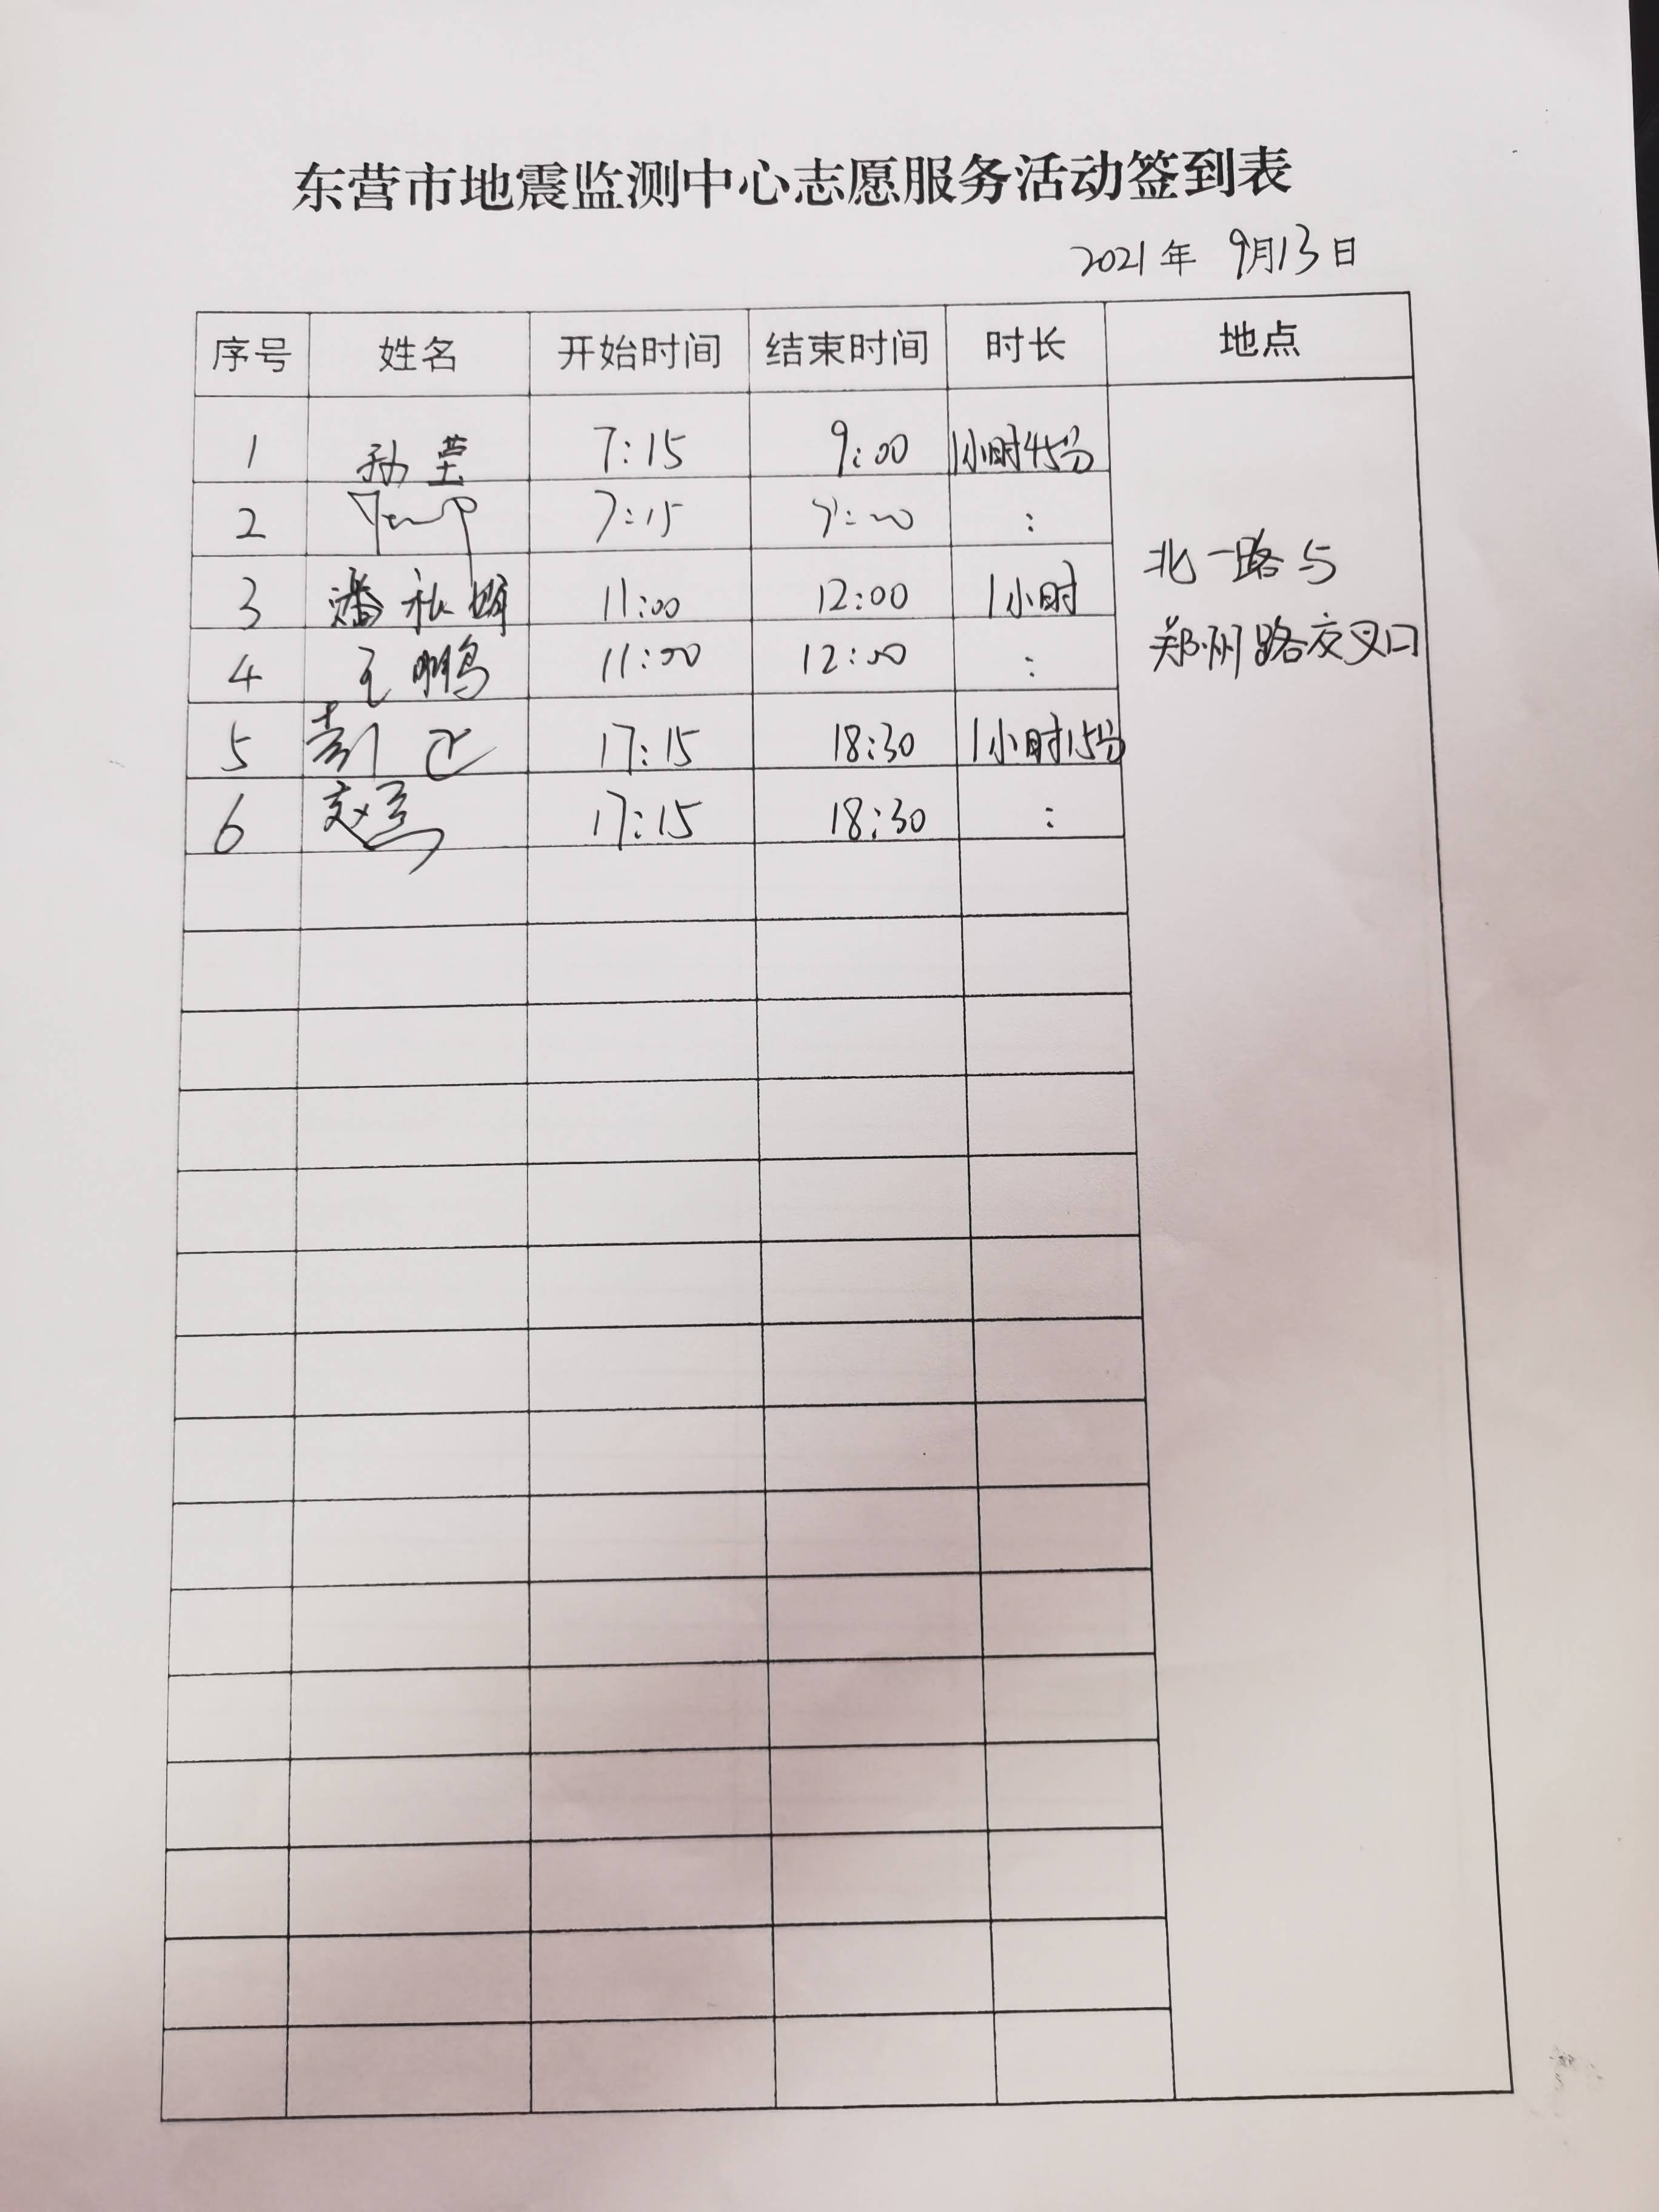 东营市地震监测中心志愿服务活动签到表
2021年 9月13日
序号 姓名 开始时间 结束时间 时长 地点
1 孙莹 7:15 9:00 1小时45分
2 7:15 :
3 潘秋娟 11:00 12:00 1小时
4 王鹏 11:00 12:00 :
5 17:15 18:30 1小时15分
6 17:15 18:30 :
北一路与
郑州路交叉口